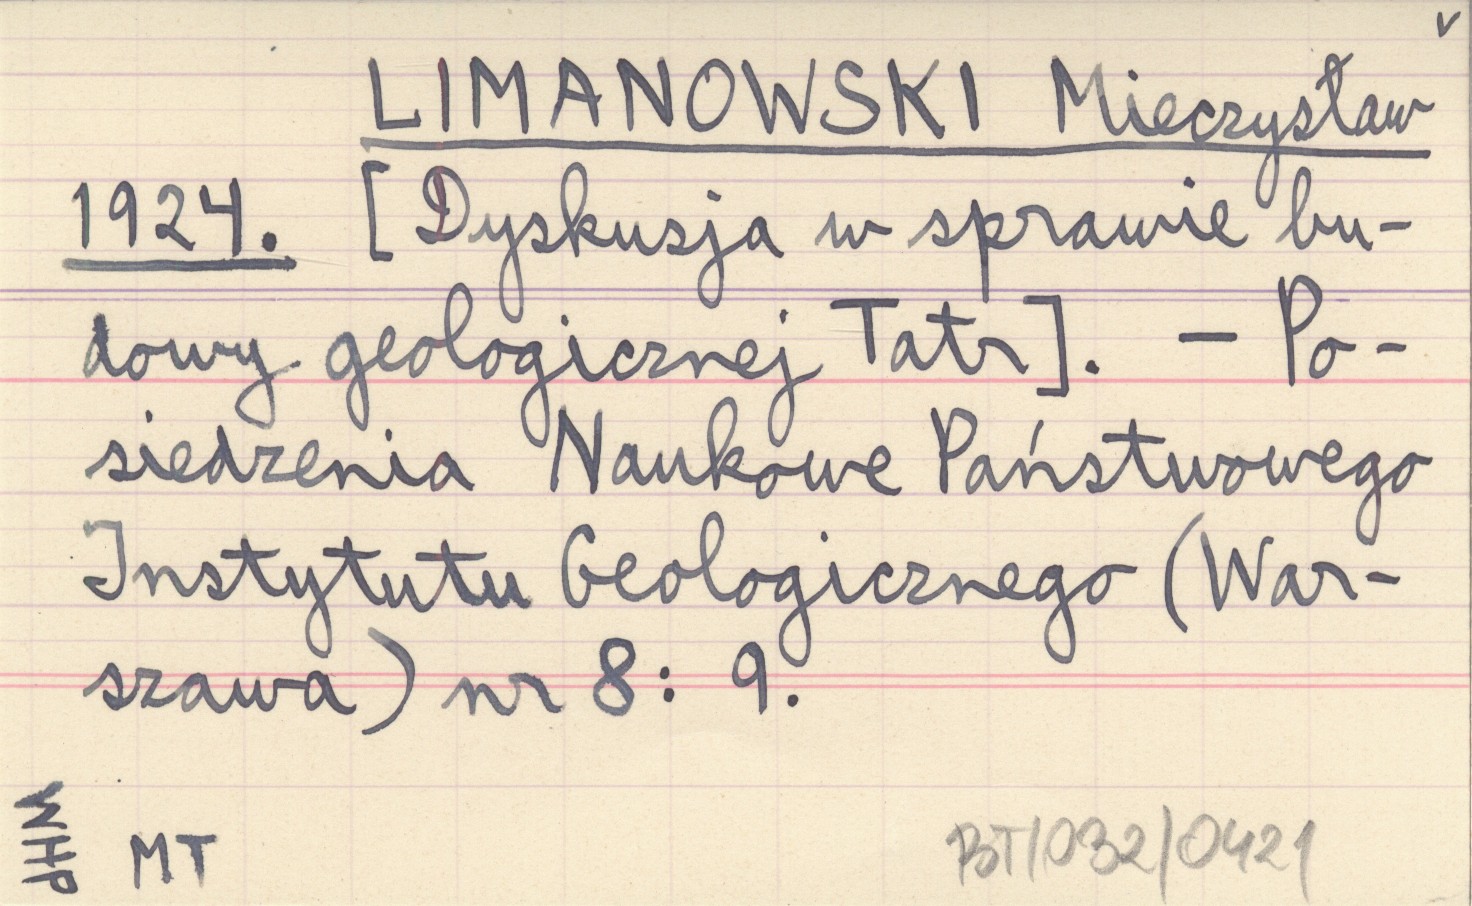 v
LIMANOWSKI Mieczysław
1924. [Dyskusja w sprawie bu-
dowy geologicznej Tatr]. – Po-
siedzenia Naukowe Państwowego
Instytutu Geologicznego (War-
szawa) nr 8: 9.
WHP
MT
BT/032/0421